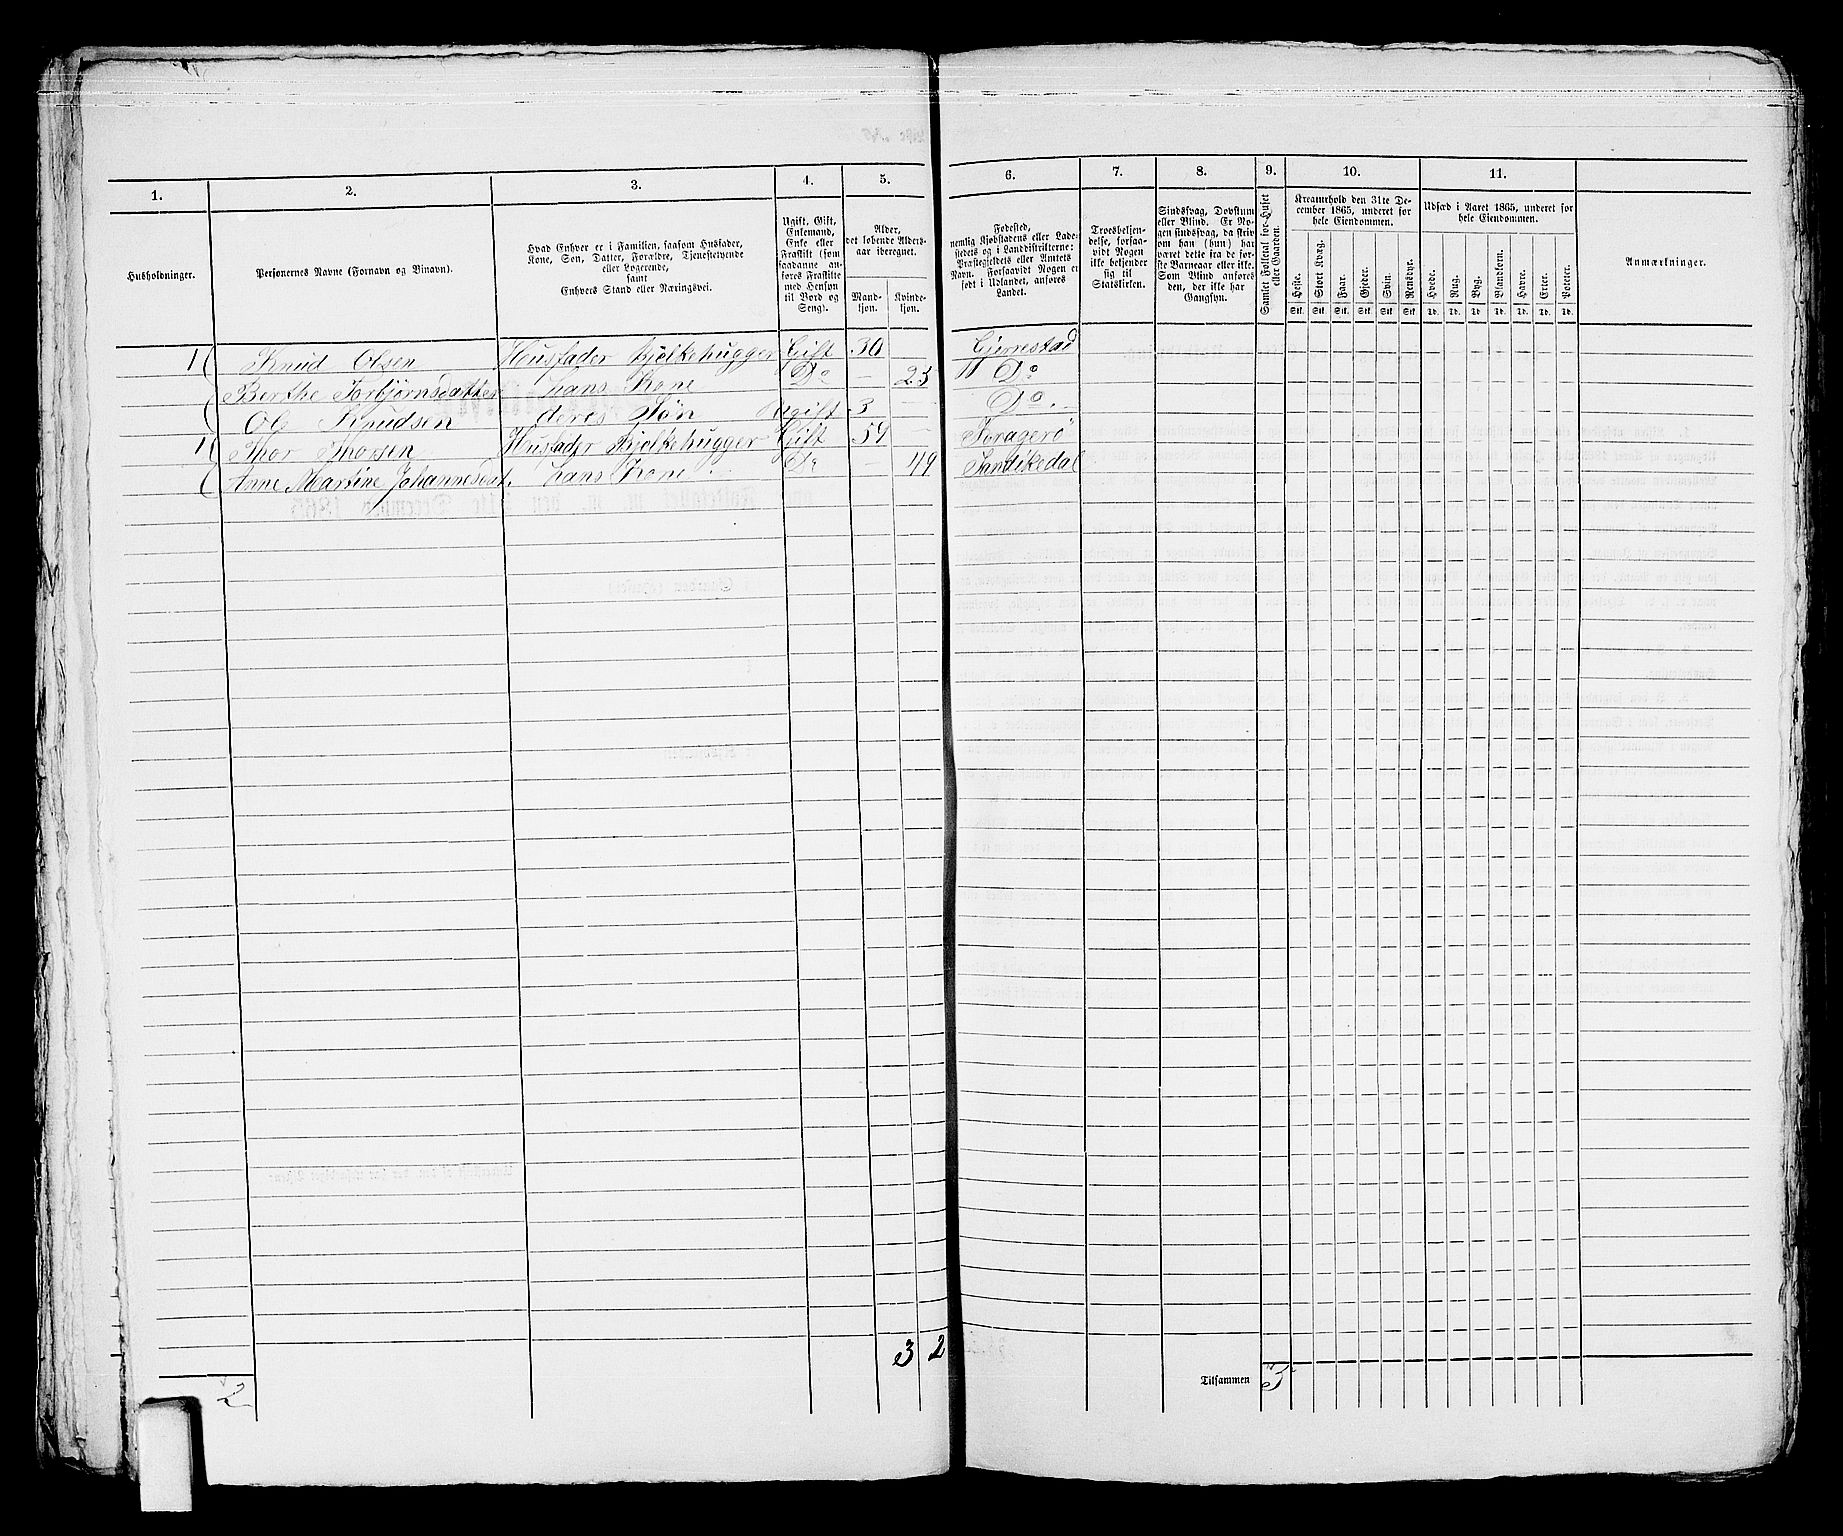 1. 2. 3. 4. 5. 6. 7. 8. 9. 10. 11.
Husholdninger.
Personernes Navne (Fornavn og Binavn).
Hvad Enhver er i Familien, saasom Husfader,
Kone, Søn, Datter, Forældre, Tjenestetyende
eller Logerende,
samt
Enhvers Stand eller Næringsvei.
Ugift, Gift,
Enkemand,
Enke eller
Fraskilt (som
saadanne an-
føres Fraskilte
med Hensyn
til Bord og
Seng).
Alder,
det løbende Alders-
aar iberegnet.
Mand-
kjøn.
Kvinde-
kjøn.
Fødested,
nemlig Kjøbstadens eller Lade-
stedets og i Landdistrikterne:
Præstegjeldets eller Amtets
Navn. Forsaavidt Nogen er
født i Udlandet, anføres
Landet.
Troesbekjen-
delse, forsaa-
vidt Nogen
ikke bekjender
sig til
Statskirken.
Sindssvag, Døvstum
eller Blind. Er No-
gen sindssvag, da skriv
om han (hun) har
været dette fra de før-
ste Barneaar eller ikke.
Som Blind anføres
den, der ikke har
Gangsyn.
Gamlet Folketal for Huset
eller Gaarden.
Kreaturhold den 31te De-
cember 1865, underet for
hele Eiendommen.
Heste. Stort Kvæg. Faar. Gjeder. Svin. Rensdyr.
Stk. Stk. Stk. Stk. Stk. Stk.
Udsæd i Aaret 1865, underet for
hele Eiendommen.
Hvede. Rug. Byg. Blandkorn. Havre. Erter. Poteter.
Td. Td. Td. Td. Td. Td. Td.
Anmærkninger.
1 Knud Olsen Husfader Bjelkehugger Gift 30 Gjerrestad
Berthe Torbjørnsdatter hans Kone Do - 25 " Do
Ole Knudsen deres Søn Ugift 3 - Do
1 Thor Thorsen Husfader Bjelkehugger Gift 54 - Kragerö
Anne Martine Johannesdat. hans Kone Do - 49 Sandikedal
3 2
Tilsammen
2